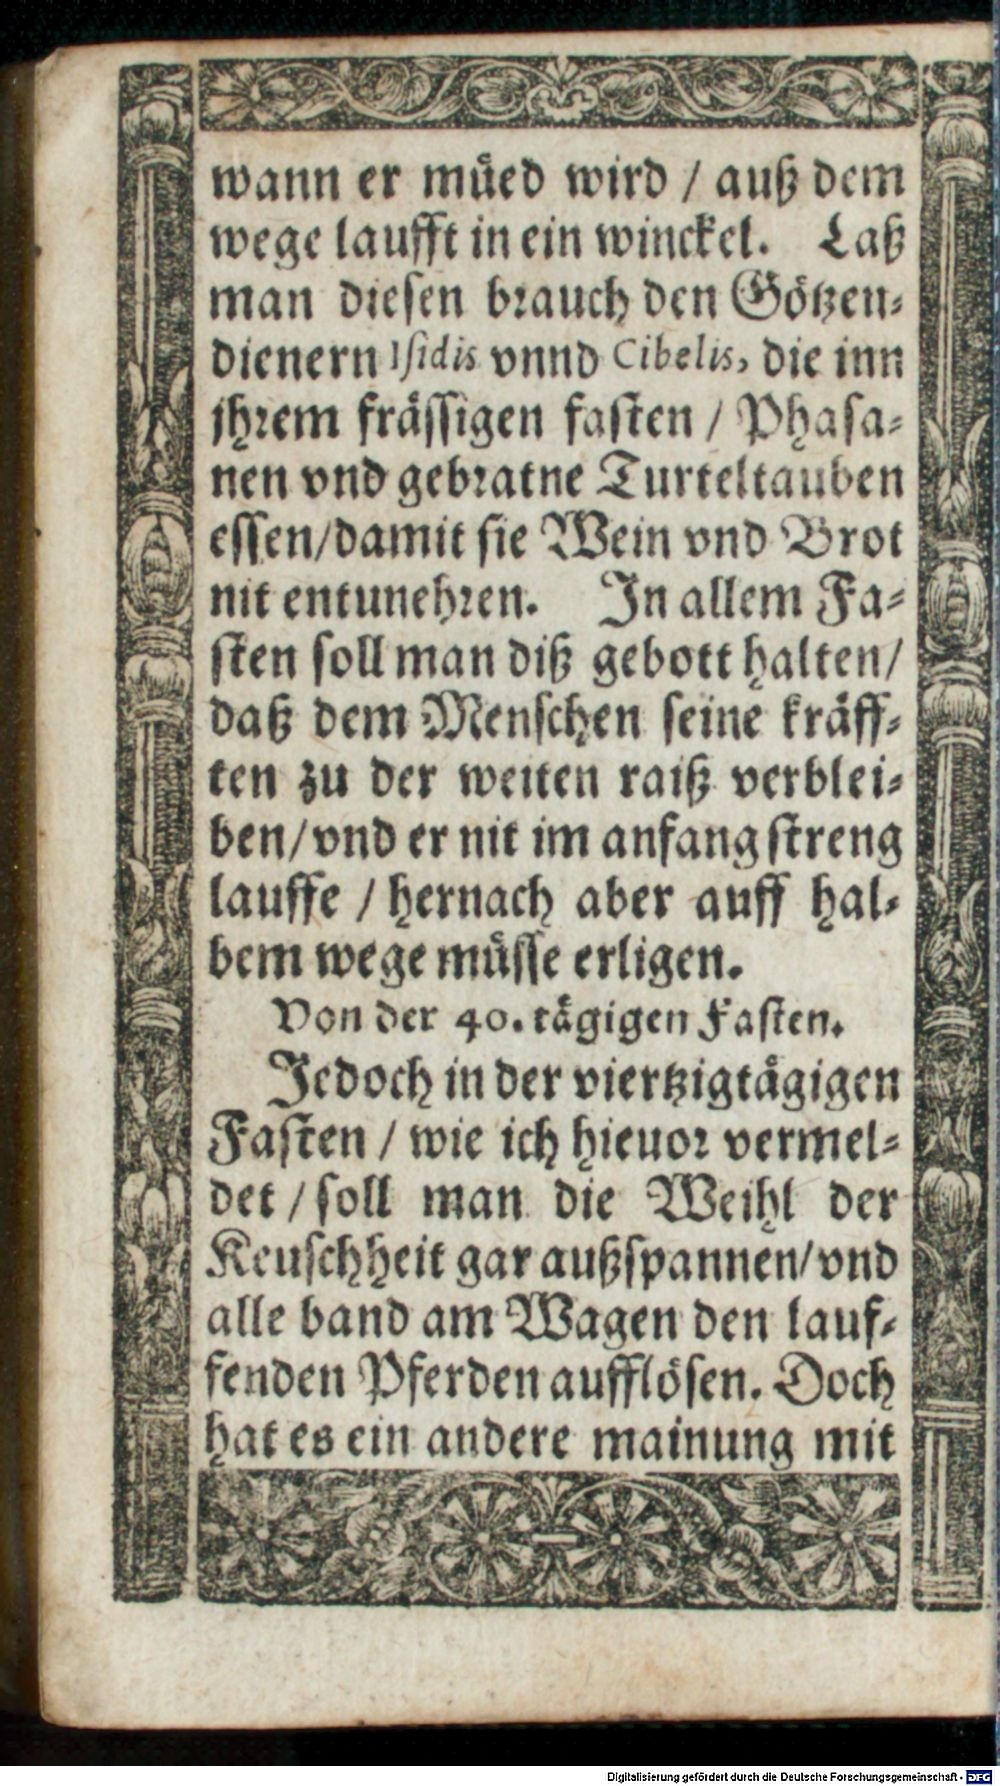 wann er müed wird / auß dem
wege laufft in ein winckel. Laß
man diesen brauch den Götzen-
dienern Isidis vnnd Cibelis, die inn
jhrem frässigen fasten / Phasa-
nen vnd gebratne Turteltauben
essen/damit sie Wein vnd Brot
nit entunehren. In allem Fa-
sten soll man diß gebott halten/
daß dem Menschen seine kräff-
ten zu der weiten raiß verblei-
ben/vnd er nit im anfang streng
lauffe / hernach aber auff hal-
bem wege müsse erligen.
Von der 40. tägigen Fasten.
Jedoch in der viertzigtägigen
Fasten / wie ich hieuor vermel-
det / soll man die Weihl der
Keuschheit gar außspannen/vnd
alle band am Wagen den lauf-
fenden Pferden aufflösen. Doch
hat es ein andere mainung mit
Digitalisierung gefördert durch die Deutsche Forschungsgemeinschaft - DFG